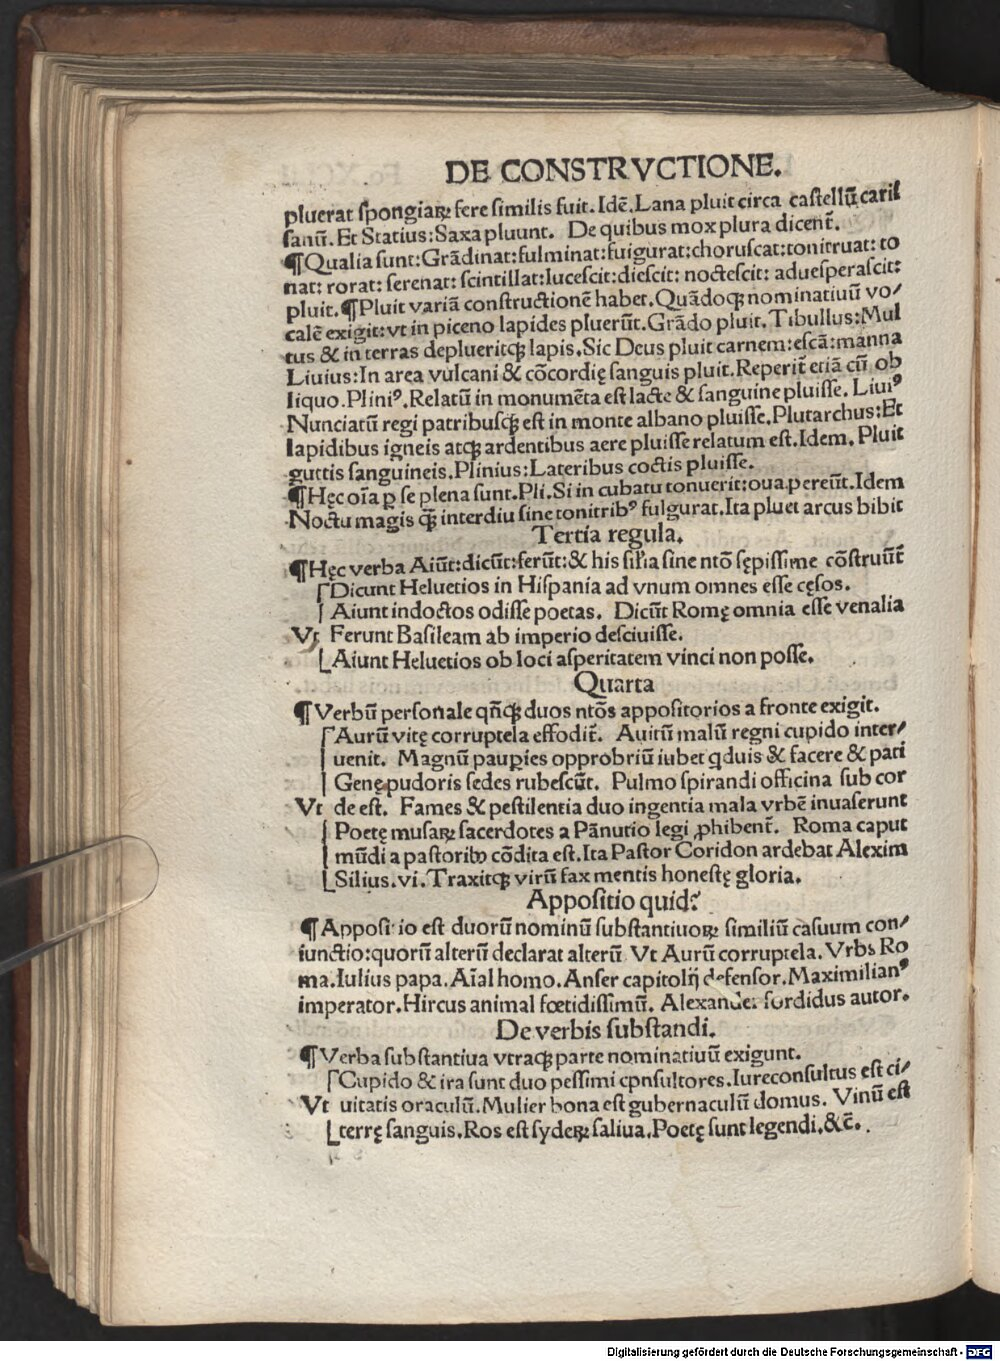 DE CONSTRVCTIONE.
pluerat spongiaꝝ fere similis fuit. Idē. Lana pluit circa castellū caris
sanū. Et Statius: Saxa pluunt. De quibus mox plura dicent̄.
¶Qualia sunt: Grādinat: fulminat: fuigurat: choruscat: tonitruat: to
nat: rorat: serenat: scintillat: lucescit: diescit: noctescit: aduesperascit:
pluit. ¶Pluit variā constructionē habet. Quādoqꝫ nominatiuū vo/
calē exigit: vt in piceno lapides pluerūt. Grādo pluit. Tibullus: Mul
tus & in terras deplueritqꝫ lapis. Sic Deus pluit carnem: escā: manna
Liuius: In area vulcani & cōcordię sanguis pluit. Reperit̄ etiā cū ob
liquo. Pliniꝰ. Relatū in monumēta est lacte & sanguine pluisse. Liuiꝰ
Nunciatū regi patribusqꝫ est in monte albano pluisse. Plutarchus: Et
lapidibus igneis atqꝫ ardentibus aere pluisse relatum est. Idem. Pluit
guttis sanguineis. Plinius: Lateribus coctis pluisse.
¶Hęc oīa ꝑ se plena sunt. Pli. Si in cubatu tonuerit: oua pereūt. Idem
Noctu magis qꝫ̄ interdiu sine tonitribꝰ fulgurat. Ita pluet arcus bibit
Tertia regula.
¶Hęc verba Aiūt: dicūt: ferūt: & his sil'ia sine ntō sępissime cōstruūt̄
Dicunt Heluetios in Hispania ad vnum omnes esse cęsos.
Aiunt indoctos odisse poetas. Dicūt Romę omnia esse venalia
Vt Ferunt Basileam ab imperio desciuisse.
Aiunt Heluetios ob loci asperitatem vinci non posse.
Quarta
¶Verbū personale qn̄qꝫ duos ntōs appositorios a fronte exigit.
Aurū vitę corruptela effodit̄. Auitū malū regni cupido inter/
uenit. Magnū pauꝑies opprobriū iubet qduis & facere & pati
Genę pudoris sedes rubescūt. Pulmo spirandi officina sub cor
Vt de est. Fames & pestilentia duo ingentia mala vrbē inuaserunt
Poetę musaꝝ sacerdotes a Pānutio legi ꝓhibent̄. Roma caput
mūdi a pastoribꝰ cōdita est. Ita Pastor Coridon ardebat Alexim
Silius. vi. Traxitqꝫ virū fax mentis honestę gloria.
Appositio quid?
¶Appositio est duorū nominū substantiuoꝝ similiū casuum con/
iunctio: quorū alterū declarat alterū Vt Aurū corruptela. Vrbs Ro
ma. Iulius papa. Aīal homo. Anser capitolij defensor. Maximilianꝰ
imperator. Hircus animal fœtidissimū. Alexander sordidus autor.
De verbis substandi.
¶Verba substantiua vtraqꝫ parte nominatiuū exigunt.
Cupido & ira sunt duo pessimi cpnsultores. Iureconsultus est ci/
Vt uitatis oraculū. Mulier bona est gubernaculū domus. Vinū est
terrę sanguis. Ros est sydeꝝ saliua. Poetę sunt legendi. &c̄.
Digitalisierung gefördert durch die Deutsche Forschungsgemeinschaft - DFG